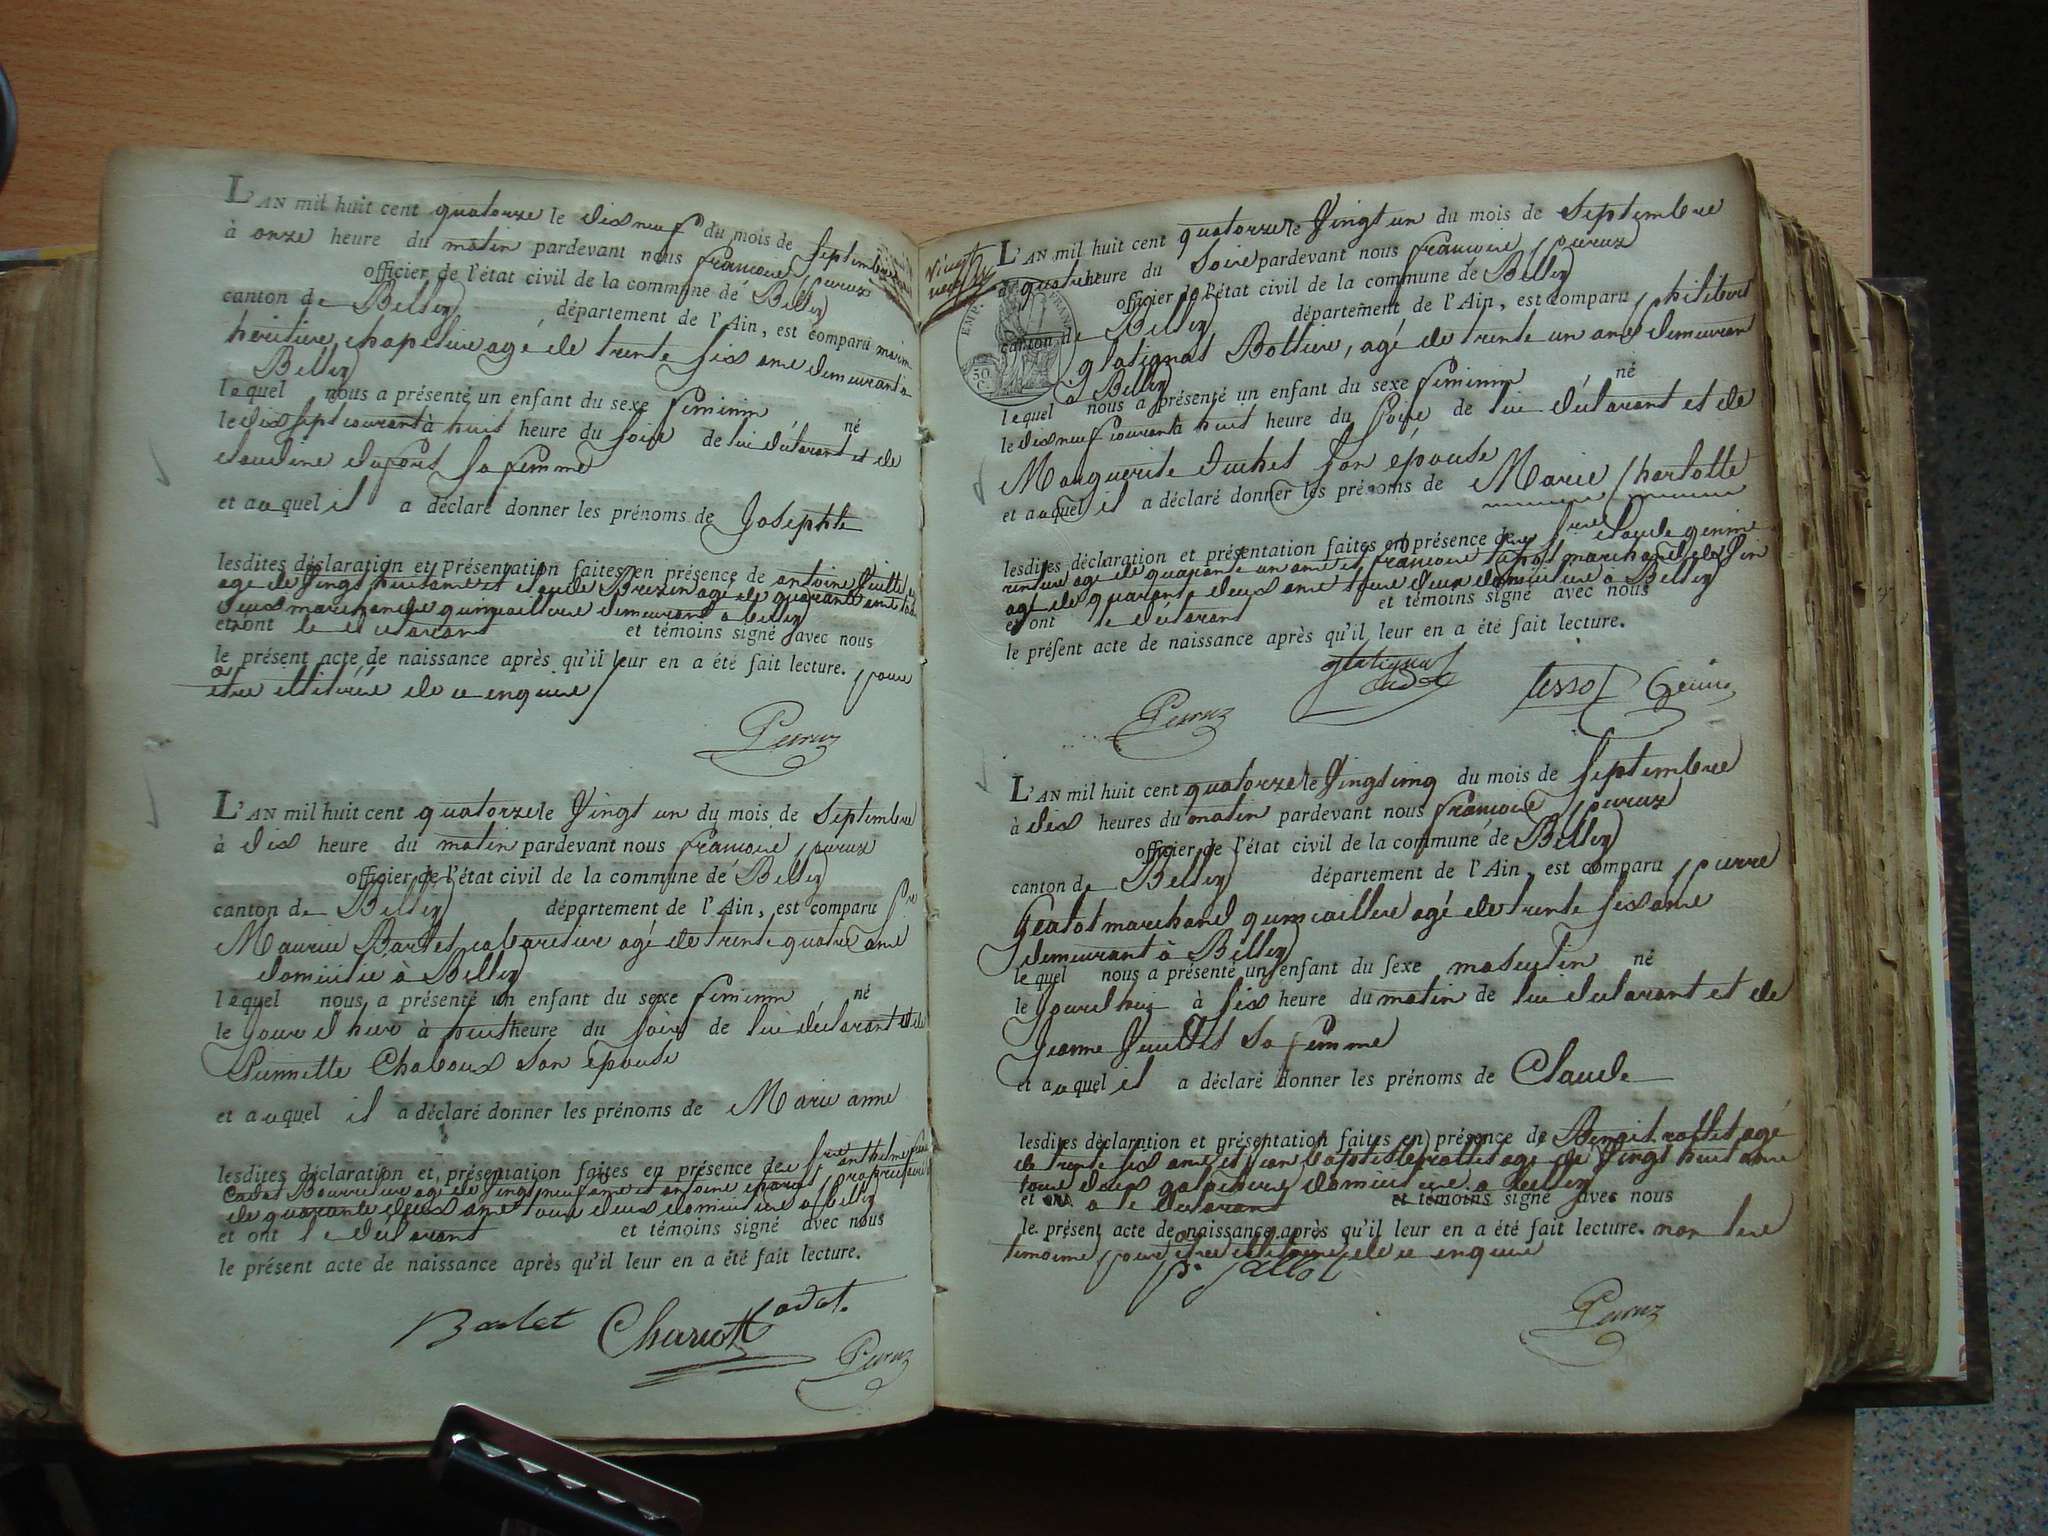 L'AN mil huit cent quatorze le dix neuf du mois de Septembre
à onze heure du matin pardevant nous francois peruz
officier de l'état civil de la commune de Belley
canton de Belley département de l'Ain, est comparu
héritier chapelier agé de trente six ans demeurant à
Belley
lequel nous a présenté un enfant du sexe feminin né
le dix sept courant à huit heure du soir de lui déclarant et de
claudine dufort sa femme
et auquel il a déclaré donner les prénoms de Josephte
lesdites déclaration et présentation faites en présence de antoine
agé de vingt huit ans et claude Brezin agé de quarante ans
deux marchands quincailliers demeurant a belley
et ont le déclarant et témoins signé avec nous
le présent acte de naissance après qu'il leur en a été fait lecture. pour
être illitéré de ce enquis
Peruz
L'AN mil huit cent quatorze le Vingt un du mois de Septembre
à dix heure du matin pardevant nous francois peruz
officier de l'état civil de la commune de Belley
canton de Belley département de l'Ain, est comparu
Maurice Barlet cabaretier agé de trente quatre ans
domicilié à Belley
lequel nous a présenté un enfant du sexe feminin né
le jour d'hier à huit heure du soir de lui déclarant et de
Pierrette Chaboux son épouse
et auquel il a déclaré donner les prénoms de Marie anne
lesdites déclaration et présentation faites en présence de anthelme
Cadot Bourrelier agé de vingt neuf ans et antoine propriétaire
de quarante deux ans tous deux domiciliés a belley
et ont le déclarant et témoins signé avec nous
le présent acte de naissance après qu'il leur en a été fait lecture.
Barlet Cadot
Peruz
L'AN mil huit cent quatorze le Vingt un du mois de Septembre
à quatre heure du Soir pardevant nous francois peruz
officier de l'état civil de la commune de Belley
canton de Belley département de l'Ain, est comparu philibert
glatignat Bottier, agé de trente un ans demeurant
à Belley
lequel nous a présenté un enfant du sexe feminin né
le dix neuf courant à huit heure du soir de lui déclarant et de
Marguerite duchet son épouse
et auquel il a déclaré donner les prénoms de Marie Charlotte
lesdites déclaration et présentation faites en présence de claude genin
rentier agé de quarante un ans et francois marchand
agé de quarante deux ans tous deux domiciliés a Belley
et ont le déclarant et témoins signé avec nous
le présent acte de naissance après qu'il leur en a été fait lecture.
glatignat
Peruz Genin
L'AN mil huit cent quatorze le Vingt cinq du mois de Septembre
à dix heures du matin pardevant nous francois peruz
officier de l'état civil de la commune de Belley
canton de Belley département de l'Ain, est comparu pierre
marchand quincaillier agé de trente six ans
demeurant à Belley
lequel nous a présenté un enfant du sexe masculin né
le jourd'hui à six heure du matin de lui déclarant et de
Jeanne sa femme
et auquel il a déclaré donner les prénoms de Claude
lesdites déclaration et présentation faites en présence de Benoit rosset agé
de trente six ans et jean baptiste agé de Vingt huit ans
tous deux domiciliés a Belley
et a le déclarant et témoins signé avec nous
le présent acte de naissance après qu'il leur en a été fait lecture. non les
temoins pour être illitéré de ce enquis
Peruz